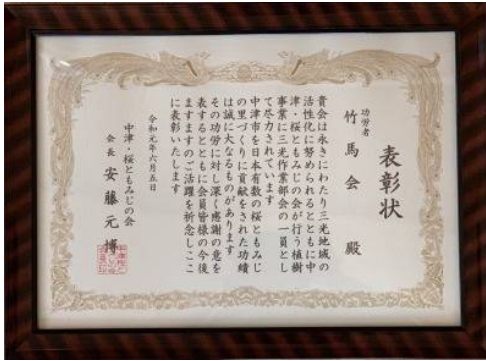 表彰状
功労者
竹馬会 殿
貴会は永きにわたり三光地域の
活性化に努められるとともに中
津・桜ともみじの会が行う植樹
事業に三光作業部会の一員とし
て尽力されています
中津市を日本有数の桜ともみじ
の里づくりに貢献をされた功績
は誠に大なるものがあります
その功労に対し深く感謝の意を
表するとともに会員皆様の今後
ますますのご活躍を祈念しここ
に表彰いたします
令和元年六月五日
中津・桜ともみじの会
会長 安藤元博